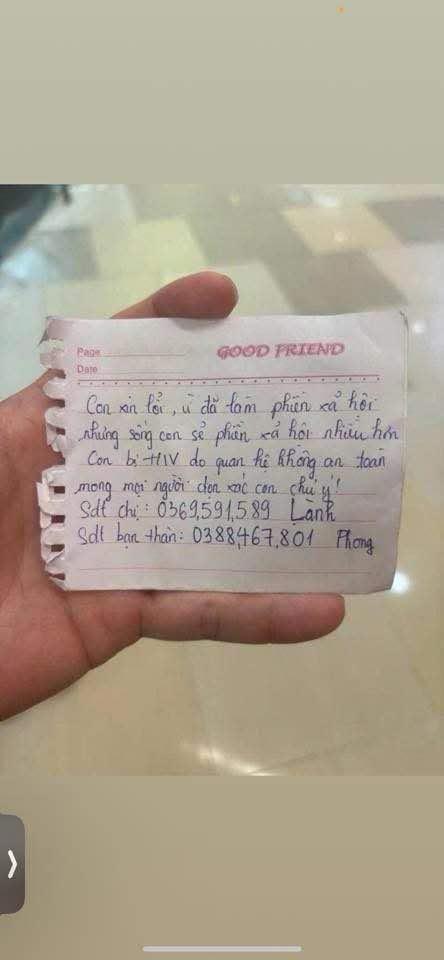 Page
GOOD FRIEND
Date
Con xin lỗi, vì đã làm phiền xã hội
nhưng sống con sẽ phiền xã hội nhiều hơn
Con bị HIV do quan hệ không an toàn
mong mọi người dọn xác con chú ý!
Sdt chị: 0369,591,589 Lành
Sdt bạn thân: 0388,467,801 Phong